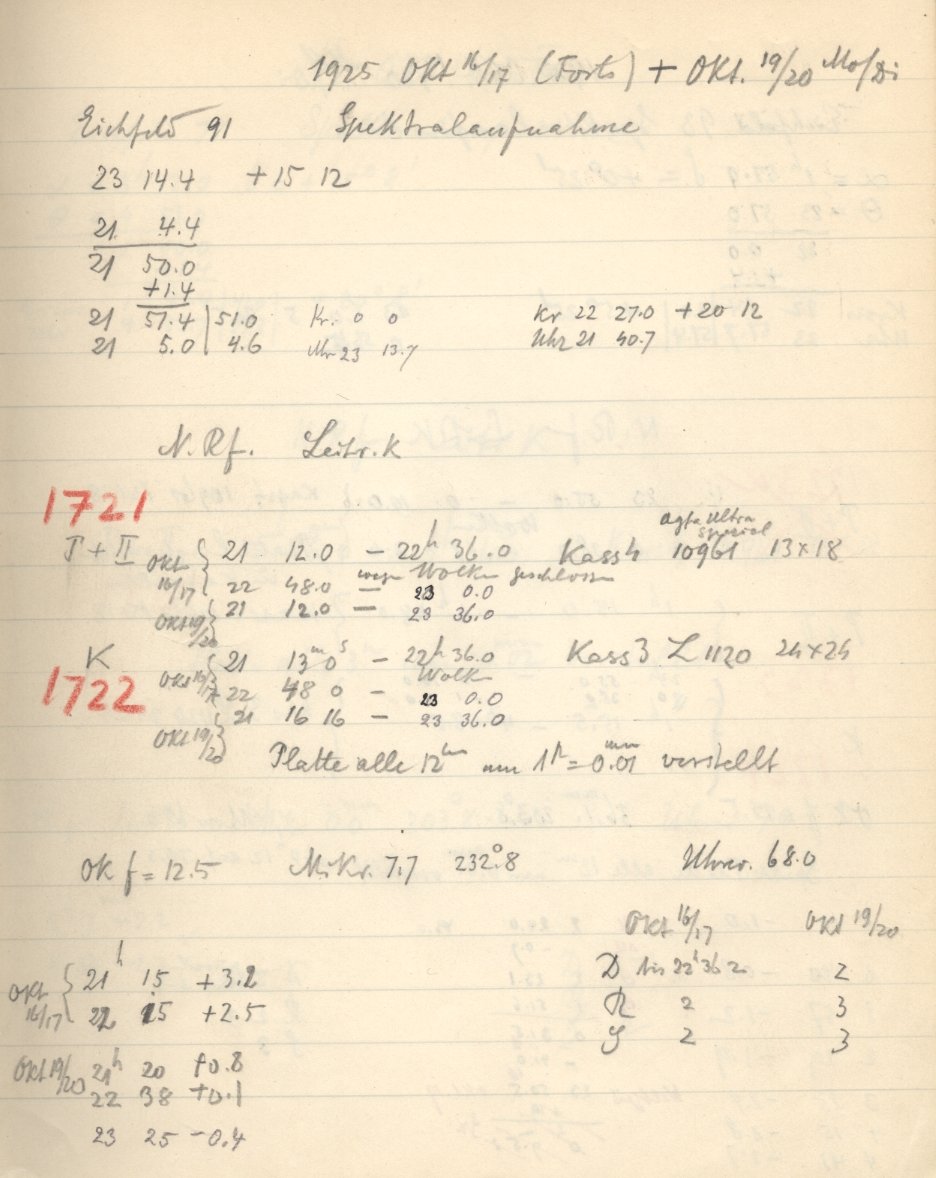 1925 Okt 16/17 (Forts) + Okt. 19/20 Mo/Di
Eichfeld 91 Spektralaufnahme
23 14.4 +15 12
21 4.4
21 50.0
+1.4
21 51.4 | 51.0 Kr. 0 0 Kr 22 27.0 +20 12
21 5.0 | 4.6 Uhr 23 13.7 Uhr 21 40.7
N. Rf. Leitr. K
1721
I + II Okt 16/17 { 21 12.0 – 22h 36.0 Kass 4 Agfa Ultra spezial 10961 13×18
22 48.0 – wegen Wolken geschlossen 23 0.0
Okt 19/20 { 21 12.0 – 23 36.0
K
1722
Okt 16/17 { 21 13m 0s – 22h 36.0 Kass 3 L 1120 24×24
22 48 0 – Wolken 23 0.0
Okt 19/20 { 21 16 16 – 23 36.0
Platte alle 12m um 1p = 0.01mm verstellt
Ok f = 12.5 Mikr. 7.7 232°.8 Uhrer. 68.0
Okt 16/17 Okt 19/20
Okt 16/17 { 21h 15 +3.2 D bis 22h 36 2 2
22 25 +2.5 R 2 3
S 2 3
Okt 19/20 21h 20 +0.8
22 38 +0.1
23 25 -0.4